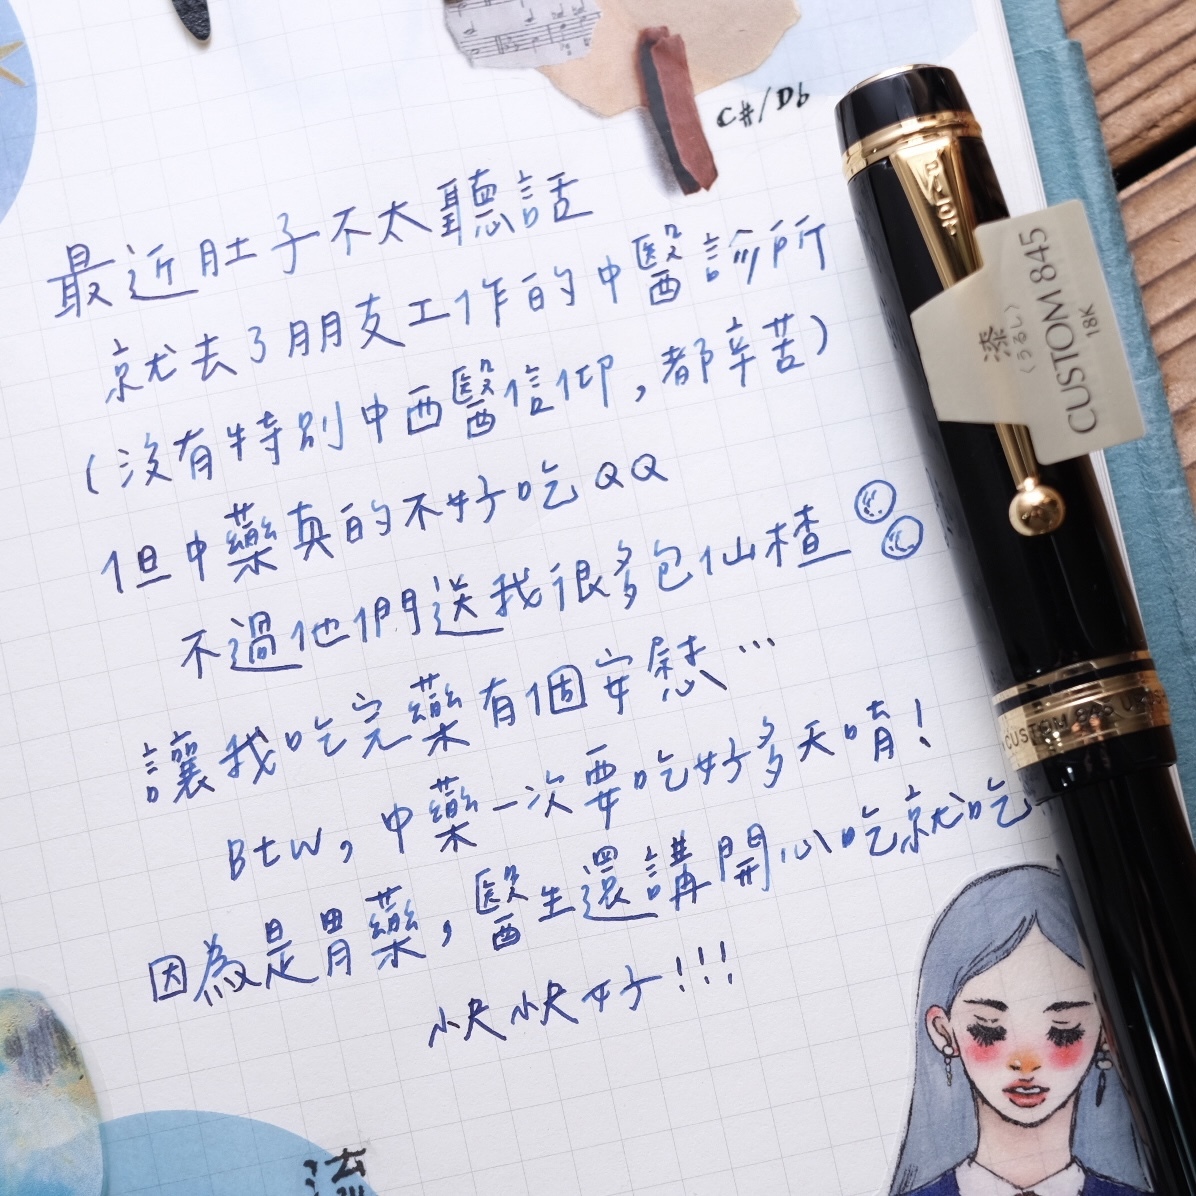 C#/Db
最近肚子不太聽話
就去了朋友工作的中醫診所
(沒有特別中西醫信仰,都辛苦)
但中藥真的不好吃QQ
不過他們送我很多包仙楂
讓我吃完藥有個安慰…
Btw,中藥一次要吃好多天唷!
因為是胃藥,醫生還講開心吃就吃
快快好!!!
PILOT
漆
(うるし)
CUSTOM 845
18K
CUSTOM 845